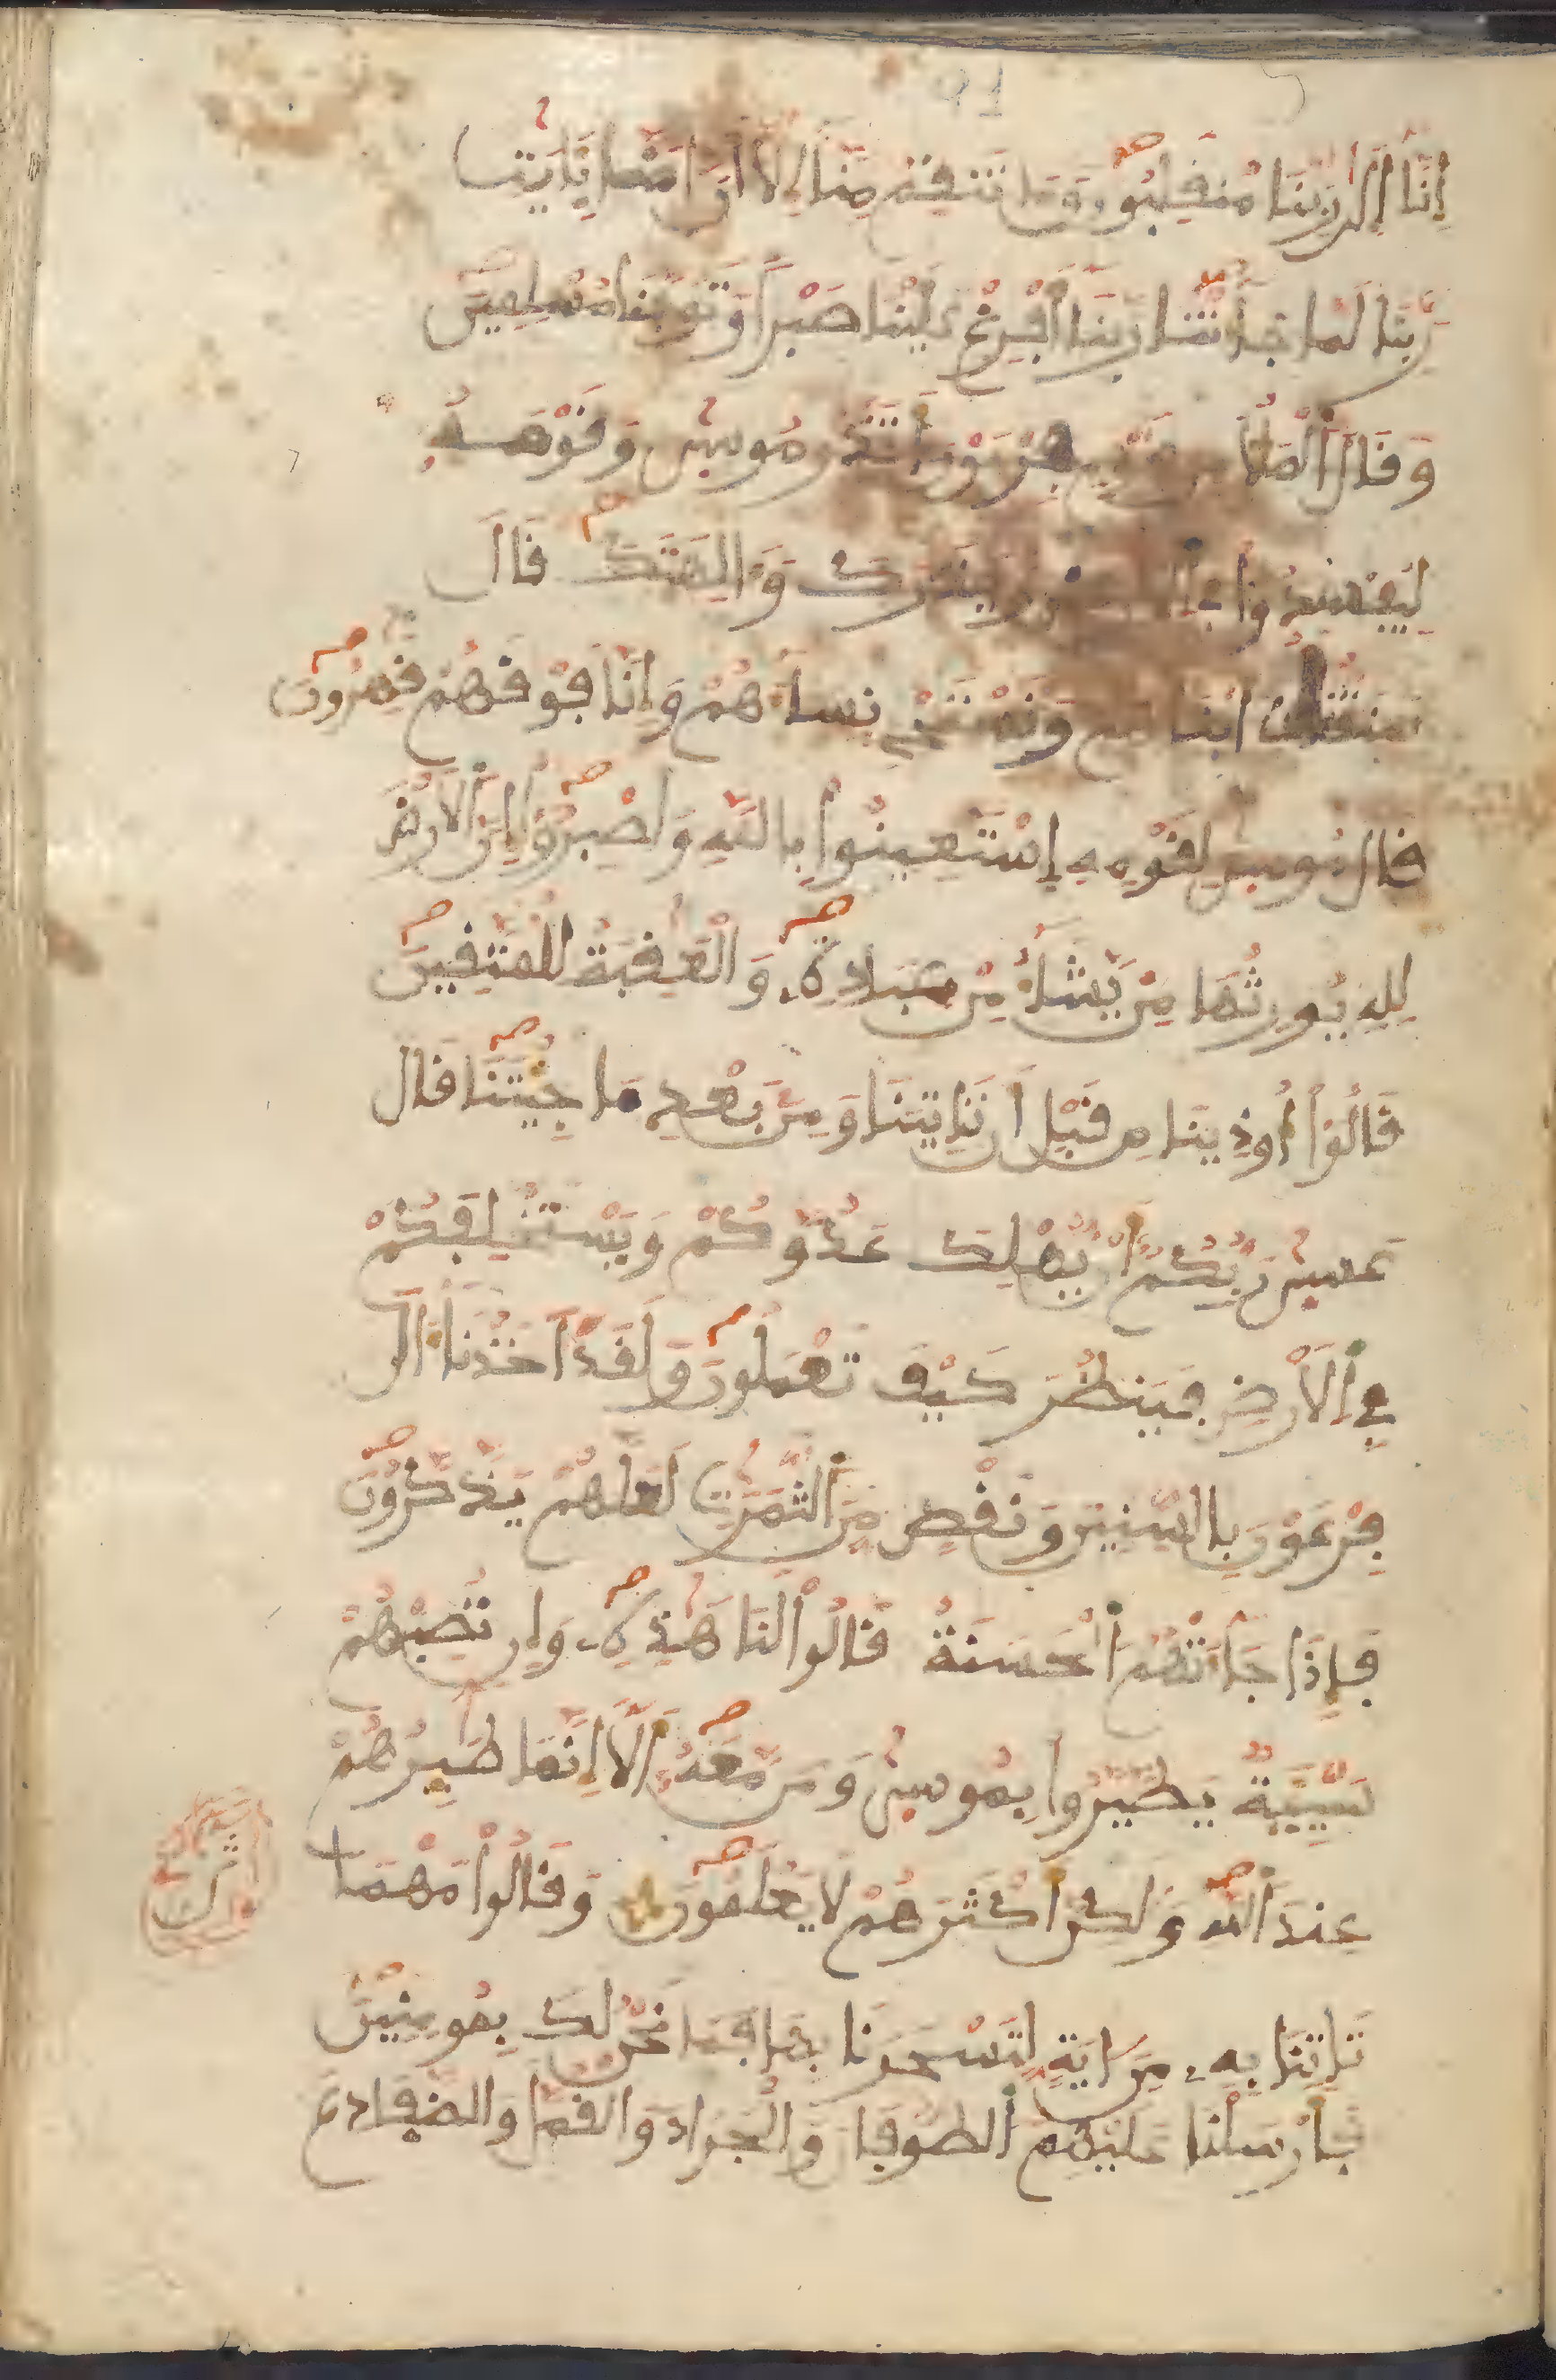 91
اِنَّا إِلَىٰ رَبِّنَا مُنقَلِبُونَ وَمَا تَنقِمُ مِنَّا إِلَّا أَنَ اٰمَنَّا بِـَٔايَٰتِ
رَبِّنَا لَمَّا جَآءَتْنَا رَبَّنَا أَفْرِغْ عَلَيْنَا صَبْرًا وَتَوَفَّنَا مُسْلِمِينَ
وَقَالَ ٱلْمَلَأُ مِن قَوْمِ فِرْعَوْنَ أَتَذَرُ مُوسىٰ وَقَوْمَهُۥ
لِيُفْسِدُوا۟ فِي ٱلْأَرْضِ وَيَذَرَكَ وَءَالِهَتَكَ قَالَ
سَنَقْتُلُ أَبْنَآءَهُمْ وَنَسْتَحْيِۦ نِسَآءَهُمْ وَإِنَّا فَوْقَهُمْ قَٰهِرُونَ
قَالَ مُوسىٰ لِقَوْمِهِ إِسْتَعِينُوا۟ بِاللَّهِ وَاصْبِرُوٓا۟ إِنَّ ٱلْأَرْضَ
لِلهِ يُورِثُهَا مَنْ يَّشَآءُ مِنْ عِبَادِهِۦ وَالْعَٰقِبَةُ لِلْمُتَّقِينَ
قَالُوٓا۟ أُوذِينَا مِن قَبْلِ أَن تَاتِيَنَا وَمِنۢ بَعْدِ مَا جِيتَنَا قَالَ
عَسىٰ رَبُّكُمْ أَن يُّهْلِكَ عَدُوَّكُمْ وَيَسْتَخْلِفَكُمْ
فِي ٱلْأَرْضِ فَيَنظُرَ كَيْفَ تَعْمَلُونَ وَلَقَدْ أَخَذْنَآ ءَالَ
فِرْعَوْنَ بِالسِّنِينَ وَنَقْصٍ مِّنَ ٱلثَّمَرَٰتِ لَعَلَّهُمْ يَذَّكَّرُونَ
فَإِذَا جَآءَتْهُمُ ٱلْحَسَنَةُ قَالُوا۟ لَنَا هَٰذِهِۦ وَإِن تُصِبْهُمْ
سَيِّيَةٌ يَطَّيَّرُوا۟ بِمُوسىٰ وَمَن مَّعَهُۥٓ أَلَآ إِنَّمَا طَٰٓئِرُهُمْ
عِندَ ٱللَّهِ وَلَٰكِنَّ أَكْثَرَهُمْ لَا يَعْلَمُونَ وَقَالُوا۟ مَهْمَا
تَاتِنَا بِهِۦ مِنَ اٰيَةٍ لِّتَسْحَرَنَا بِهَا فَمَا نَحْنُ لَكَ بِمُومِنِينَ
فَأَرْسَلْنَا عَلَيْهِمُ ٱلطُّوفَانَ وَالْجَرَادَ وَالْقُمَّلَ وَالضَّفَادِعَ